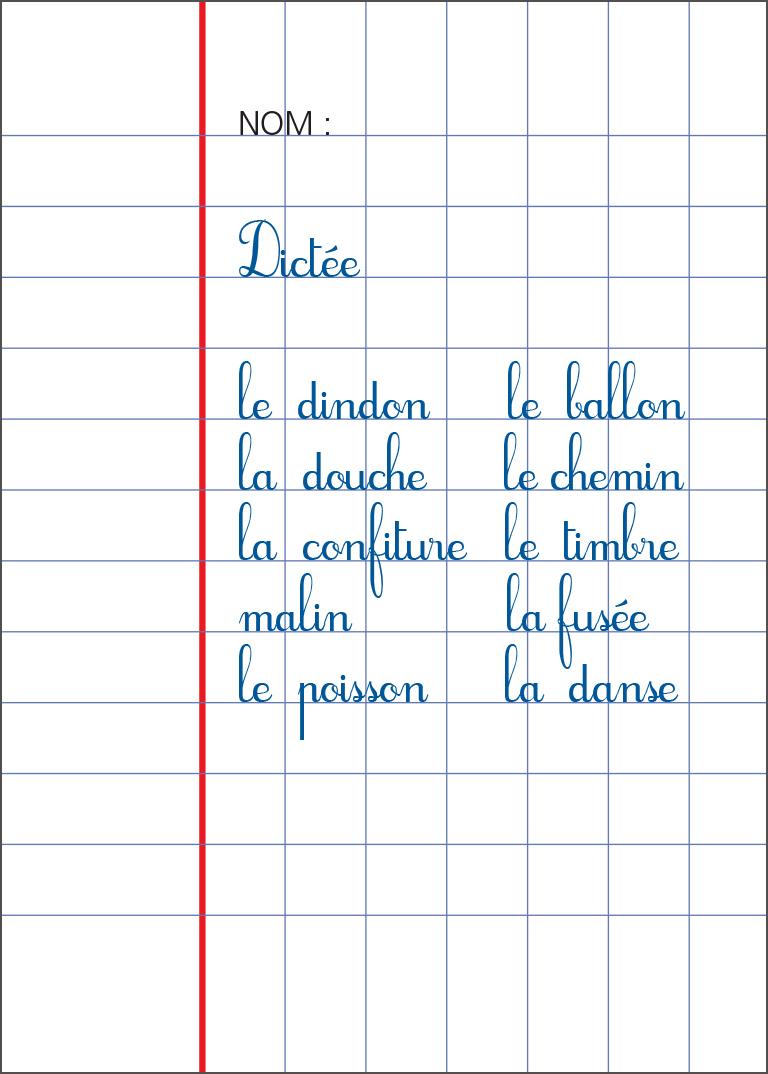 NOM :
Dictée
le dindon le ballon
la douche le chemin
la confiture le timbre
malin la fusée
le poisson la danse